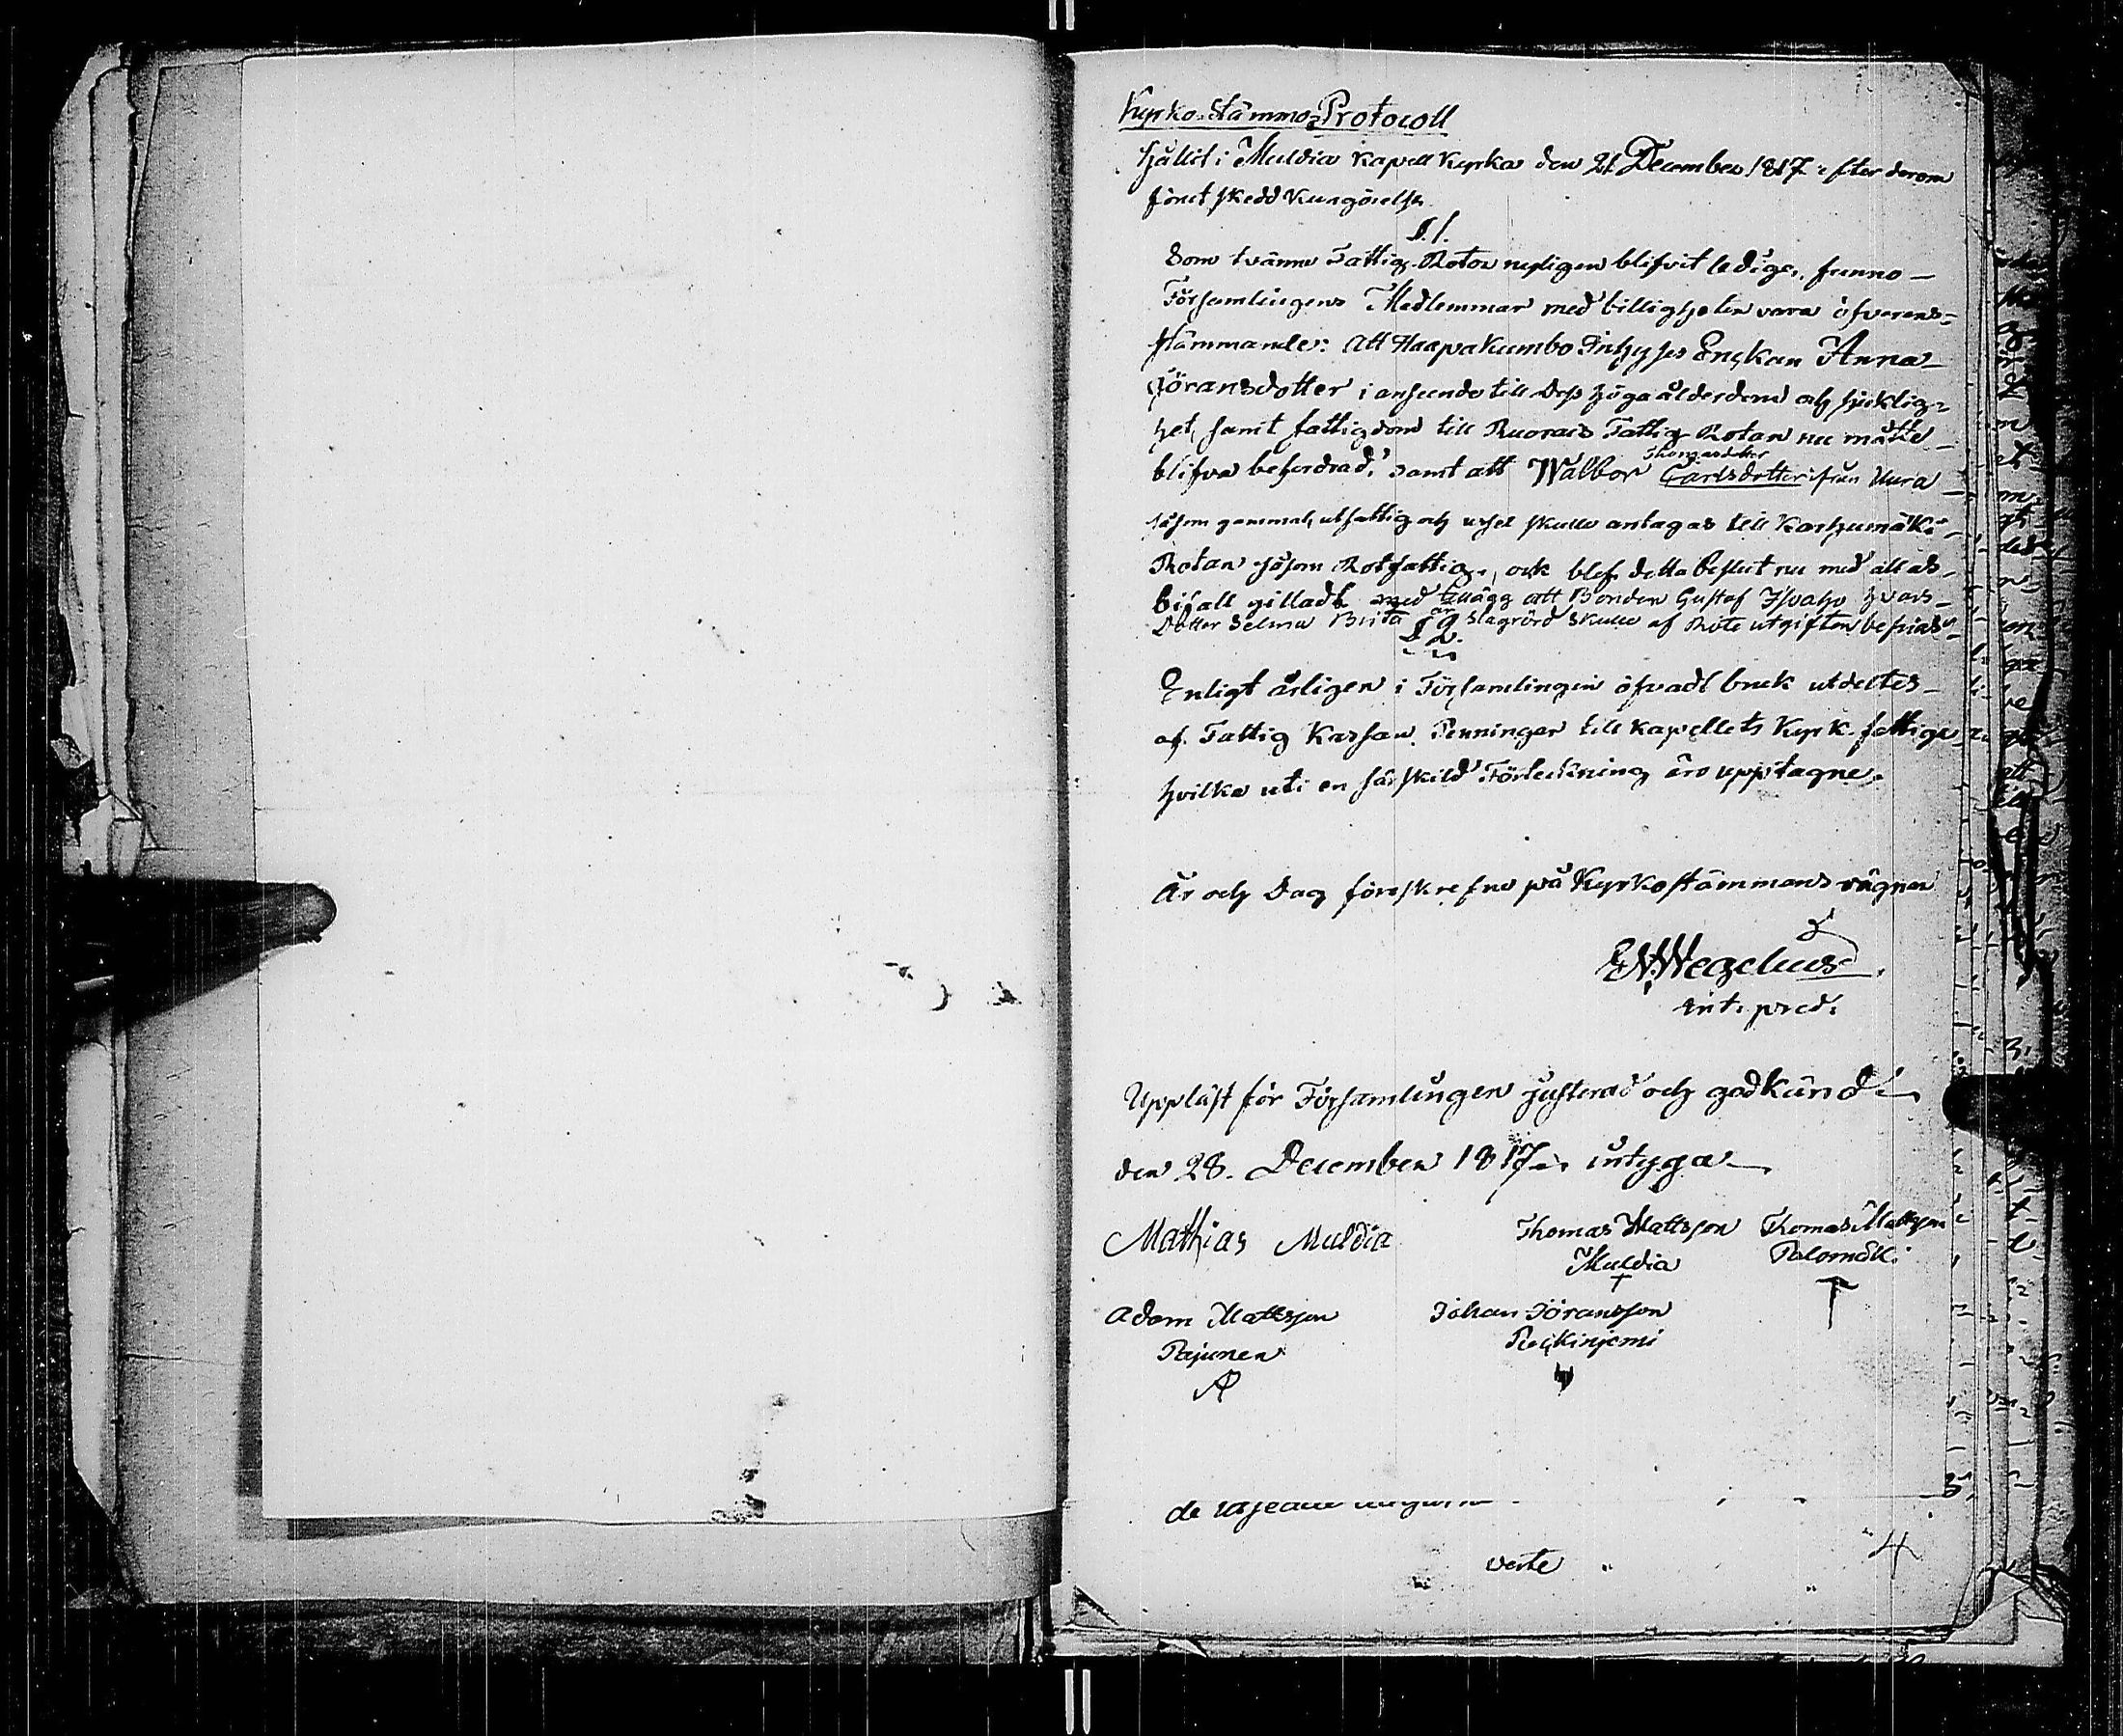 Kyrko-Stämmo-Protocoll
hållit i Muldia Kapell Kyrka den 21 December 1817 efter derom
förut skedd Kungörelse.
§.1.
Som tvänne Fattig-Rotor nyligen blifvit lediga, funno
Församlingens Medlemmar med billigheten vara öfverens-
stämmande: att Haapakumbo Inhyses Enckan Anna
Jöransdotter i anseende till dess höga ålderdom och sjuklig-
het, samt fattigdom till Ruorais Fattig Rotan nu måtte
blifva befordrad, samt att Walbor Carlsdotter ifrån Uura
Thomasdotter
såsom gammal, utfattig och ussel skulle antagas till Karhumäki
Rotan såsom Rotfattig, och blef detta beslut nu med allas
bifall gilladt med tillägg att Bonden Gustaf hvars
Dotter Selma Brita är slagrörd skulle af Rote utgiften befrias
§ 2.
Enligt årligen i Församlingen öfvadt bruk utdeltes
af Fattig Kassan Penningar till Kapellets Kyrk-fattige
hvilka uti en särskild Förteckning äro upptagne.
År och Dag föreskrefne på Kyrkostämmans vägnar
E N Wegelius
int. pred.
Uppläst för Församlingen justerad och godkänd
den 28. December 1817, intyga
Mathias Muldia Thomas Mattsson Thomas Mattsson
Muldia Palomäki
Adam Mattsson Johan Jöransson
Pajunen
AP
de
verte
4